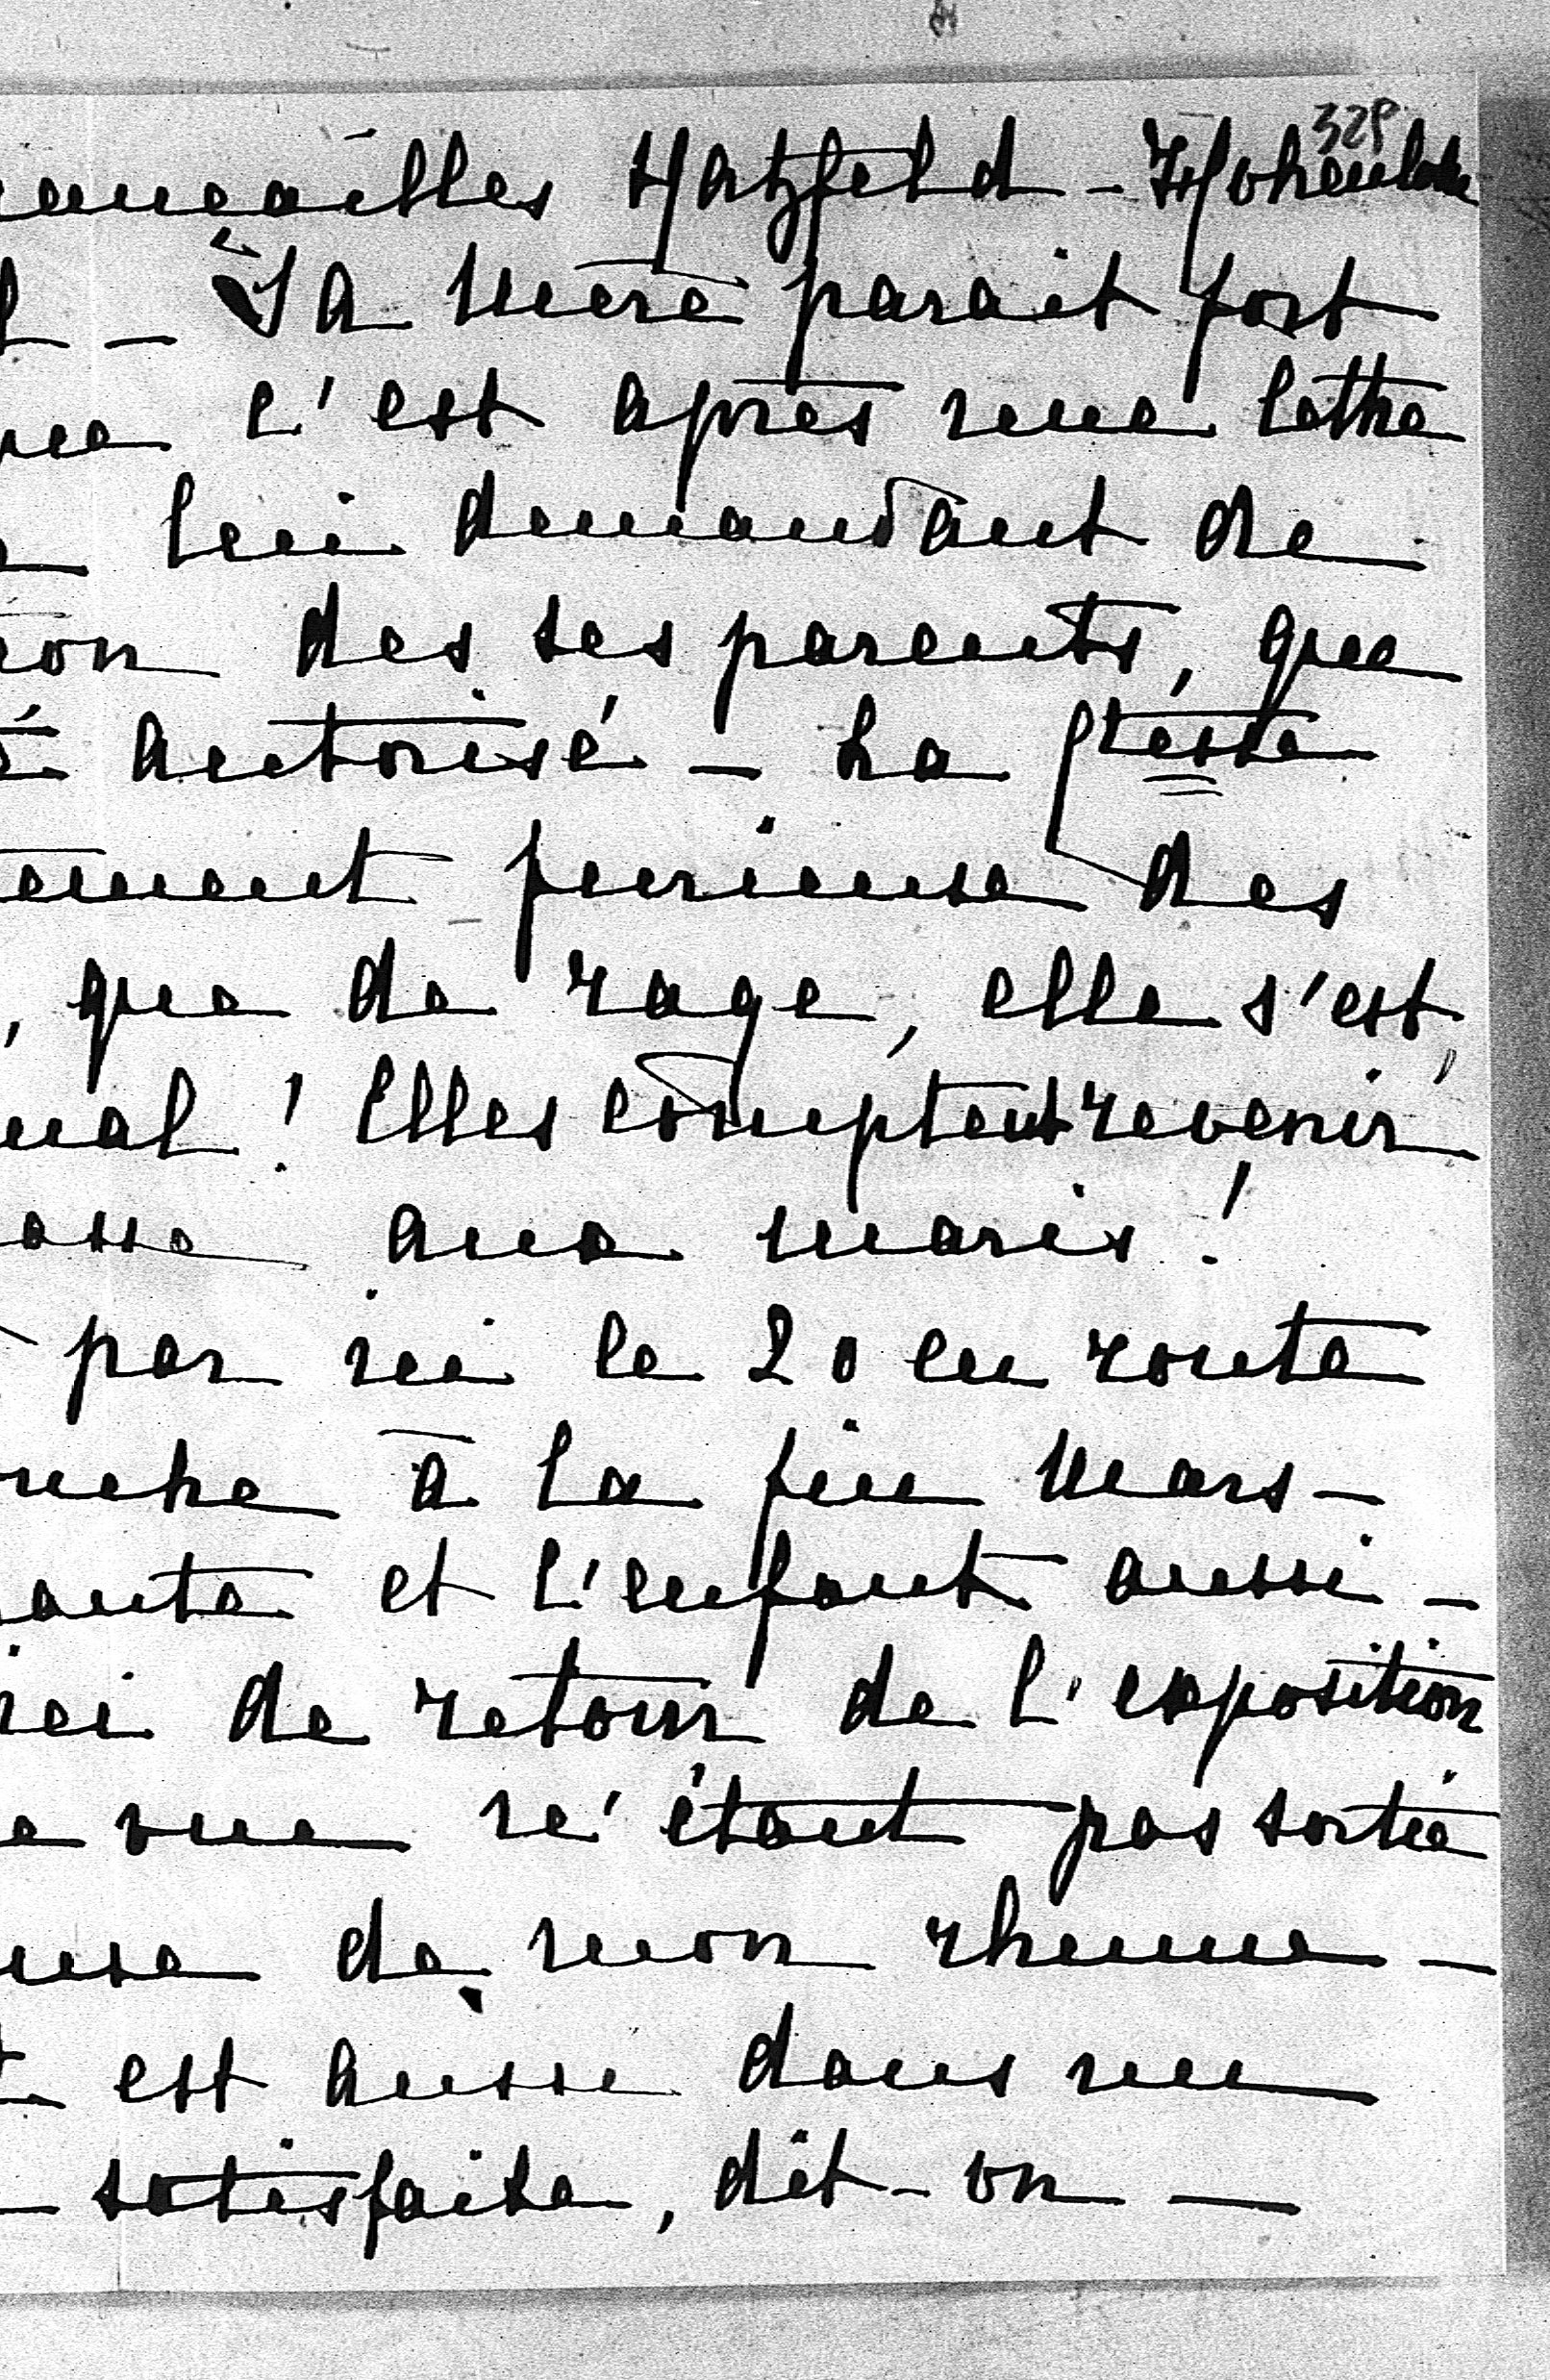 329
ançailles Hatzfeld - Hohenlohe
- Sa mère parait fort
c'est après une lettre
lui demandant de
ion des ses parents, que
é autorisé - La Ptesse
ement furieuse des
, que de rage, elle s'est
mal ! Elles comptent revenir
asse aux maris !
par ici le 20 en route
uche à la fin Mars -
ante et l'enfant aussi -
ici de retour de l'exposition
vue n'étant pas sortie
use de mon rhume -
est aussi dans un
satisfaite, dit-on -